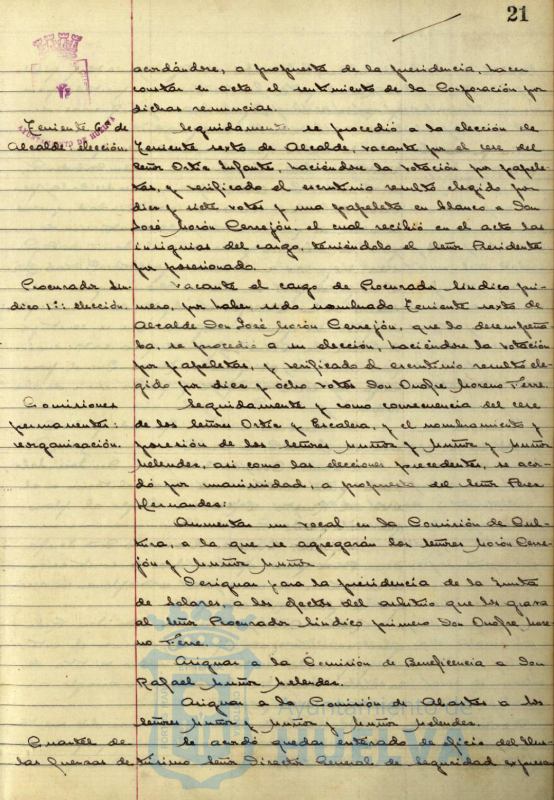 21
acordándose, a propuesta de la presidencia, hacer
constar en acta el sentimiento de la Corporación por
dichas renuncias.
Teniente 6º de
Alcalde elección.
Seguidamente se procedió a la elección de
Teniente sexto de Alcalde, vacante por el cese del
Señor Ortiz Infante, haciéndose la votación por papele-
tas, y verificado el escrutinio resultó elegido por
diez y siete votos y una papeleta en blanco a Don
José Morón Cerrejón, el cual recibió en el acto las
insignias del cargo, teniéndolo el Señor Presidente
por posesionado.
Procurador Sín-
dico 1º: elección.
Vacante el cargo de Procurador Síndico pri-
mero, por haber sido nombrado Teniente sexto de
Alcalde Don José Morón Cerrejón, que lo desempeña-
ba, se procedió a su elección, haciéndose la votación
por papeletas, y verificado el escrutinio resultó ele-
gido por diez y ocho votos Don Onofre Moreno Ferre.
Comisiones
permanentes:
reorganización.
Seguidamente y como consecuencia del cese
de los Señores Ortiz y Escalera, y el nombramiento y
posesión de los Señores Muñoz y Muñoz y Muñoz
Melendez, asi como las elecciones precedentes, se acor-
dó por unanimidad, a propuesta del Señor Pérez
Hernandez:
Aumentar un vocal en la Comisión de Cul-
tura, a la que se agregarán los Señores Morón Cerre-
jón y Muñoz Muñoz
Designar para la presidencia de la Junta
de Solares, a los efectos del arbitrio que los grava
al Señor Procurador Síndico primero Don Onofre More-
no Ferre.
Asignar a la Comisión de Beneficencia a Don
Rafael Muñoz Melendez.
Asignar a la Comisión de Abastos a los
Señores Muñoz y Muñoz y Muñoz Melendez.
Cuartel de
las fuerzas de
Se acordó quedar enterado de oficio del Ilus-
trísimo Señor Director General de Seguridad expresa
Ayuntamiento de
HUELVA